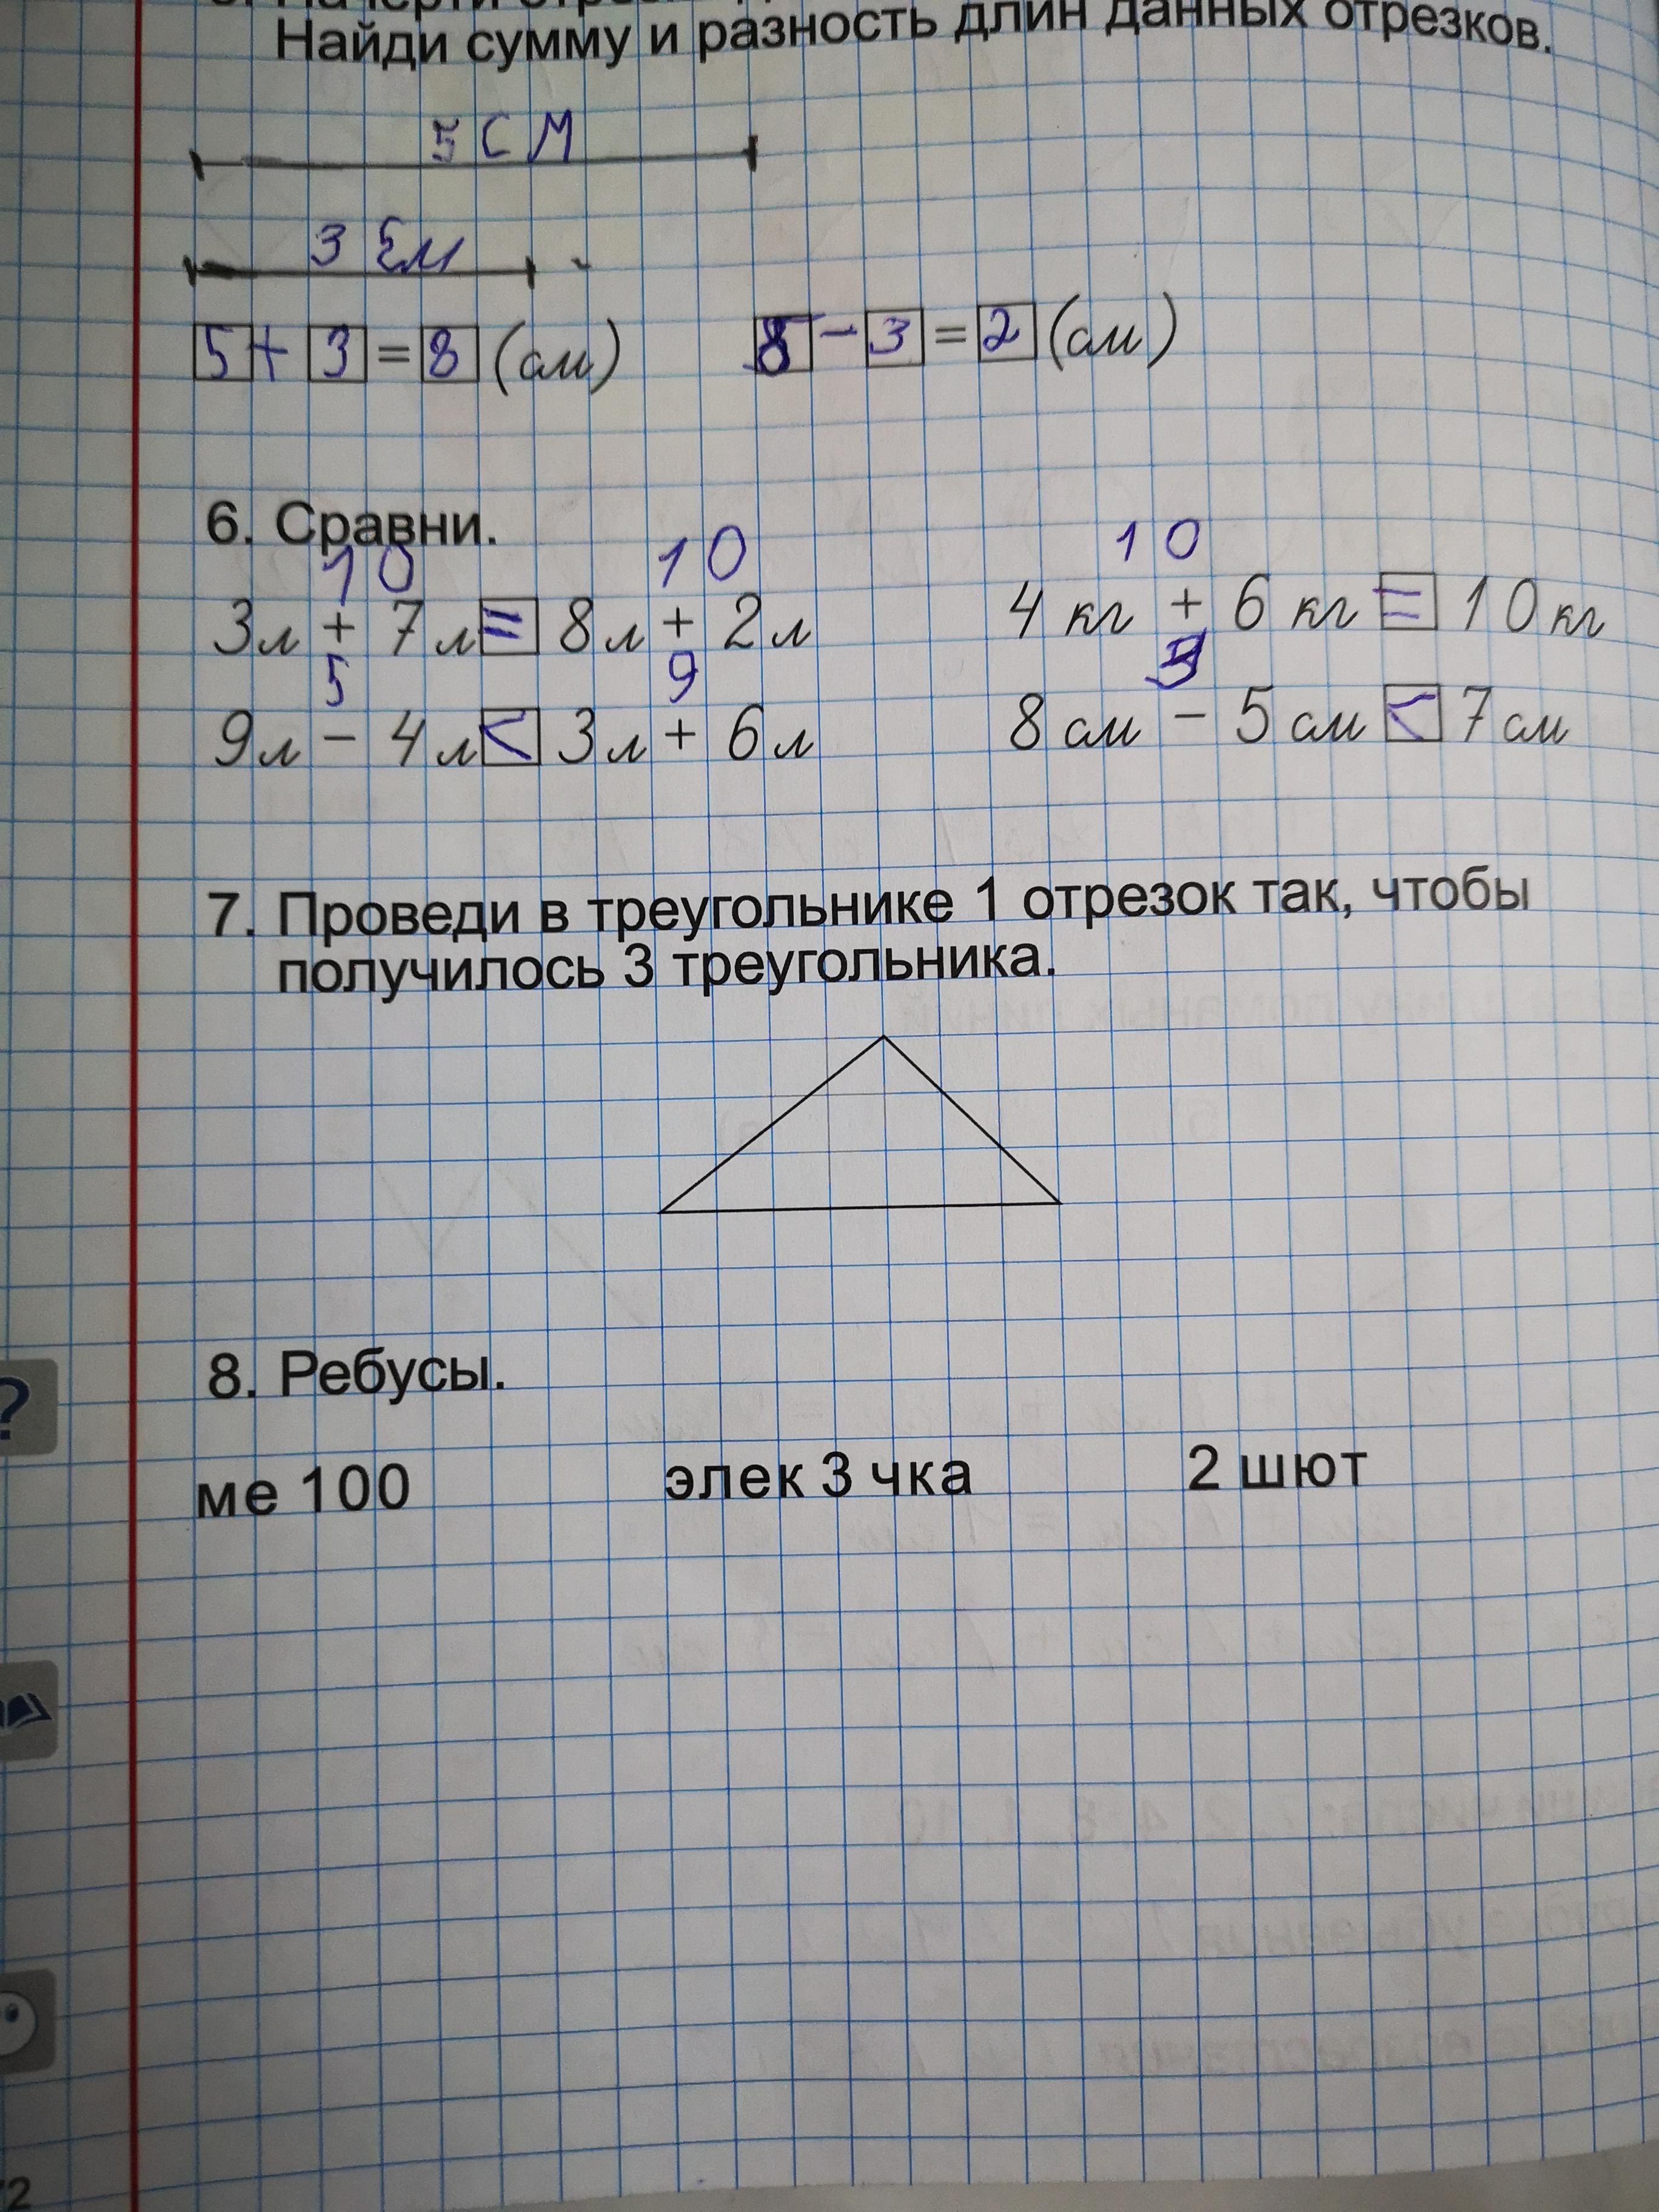 Найди сумму и разность длин данных отрезков.
5 СМ
3 см
5 + 3 = 8 (см)
8 - 3 = 2 (см)
6. Сравни.
10 10 10
3л + 7л = 8л + 2л 4 кг + 6 кг = 10кг
5 9 3
9л - 4л < 3л + 6л 8 см - 5 см < 7 см
7. Проведи в треугольнике 1 отрезок так, чтобы
получилось 3 треугольника.
8. Ребусы.
?
ме 100 элек 3 чка 2 шют